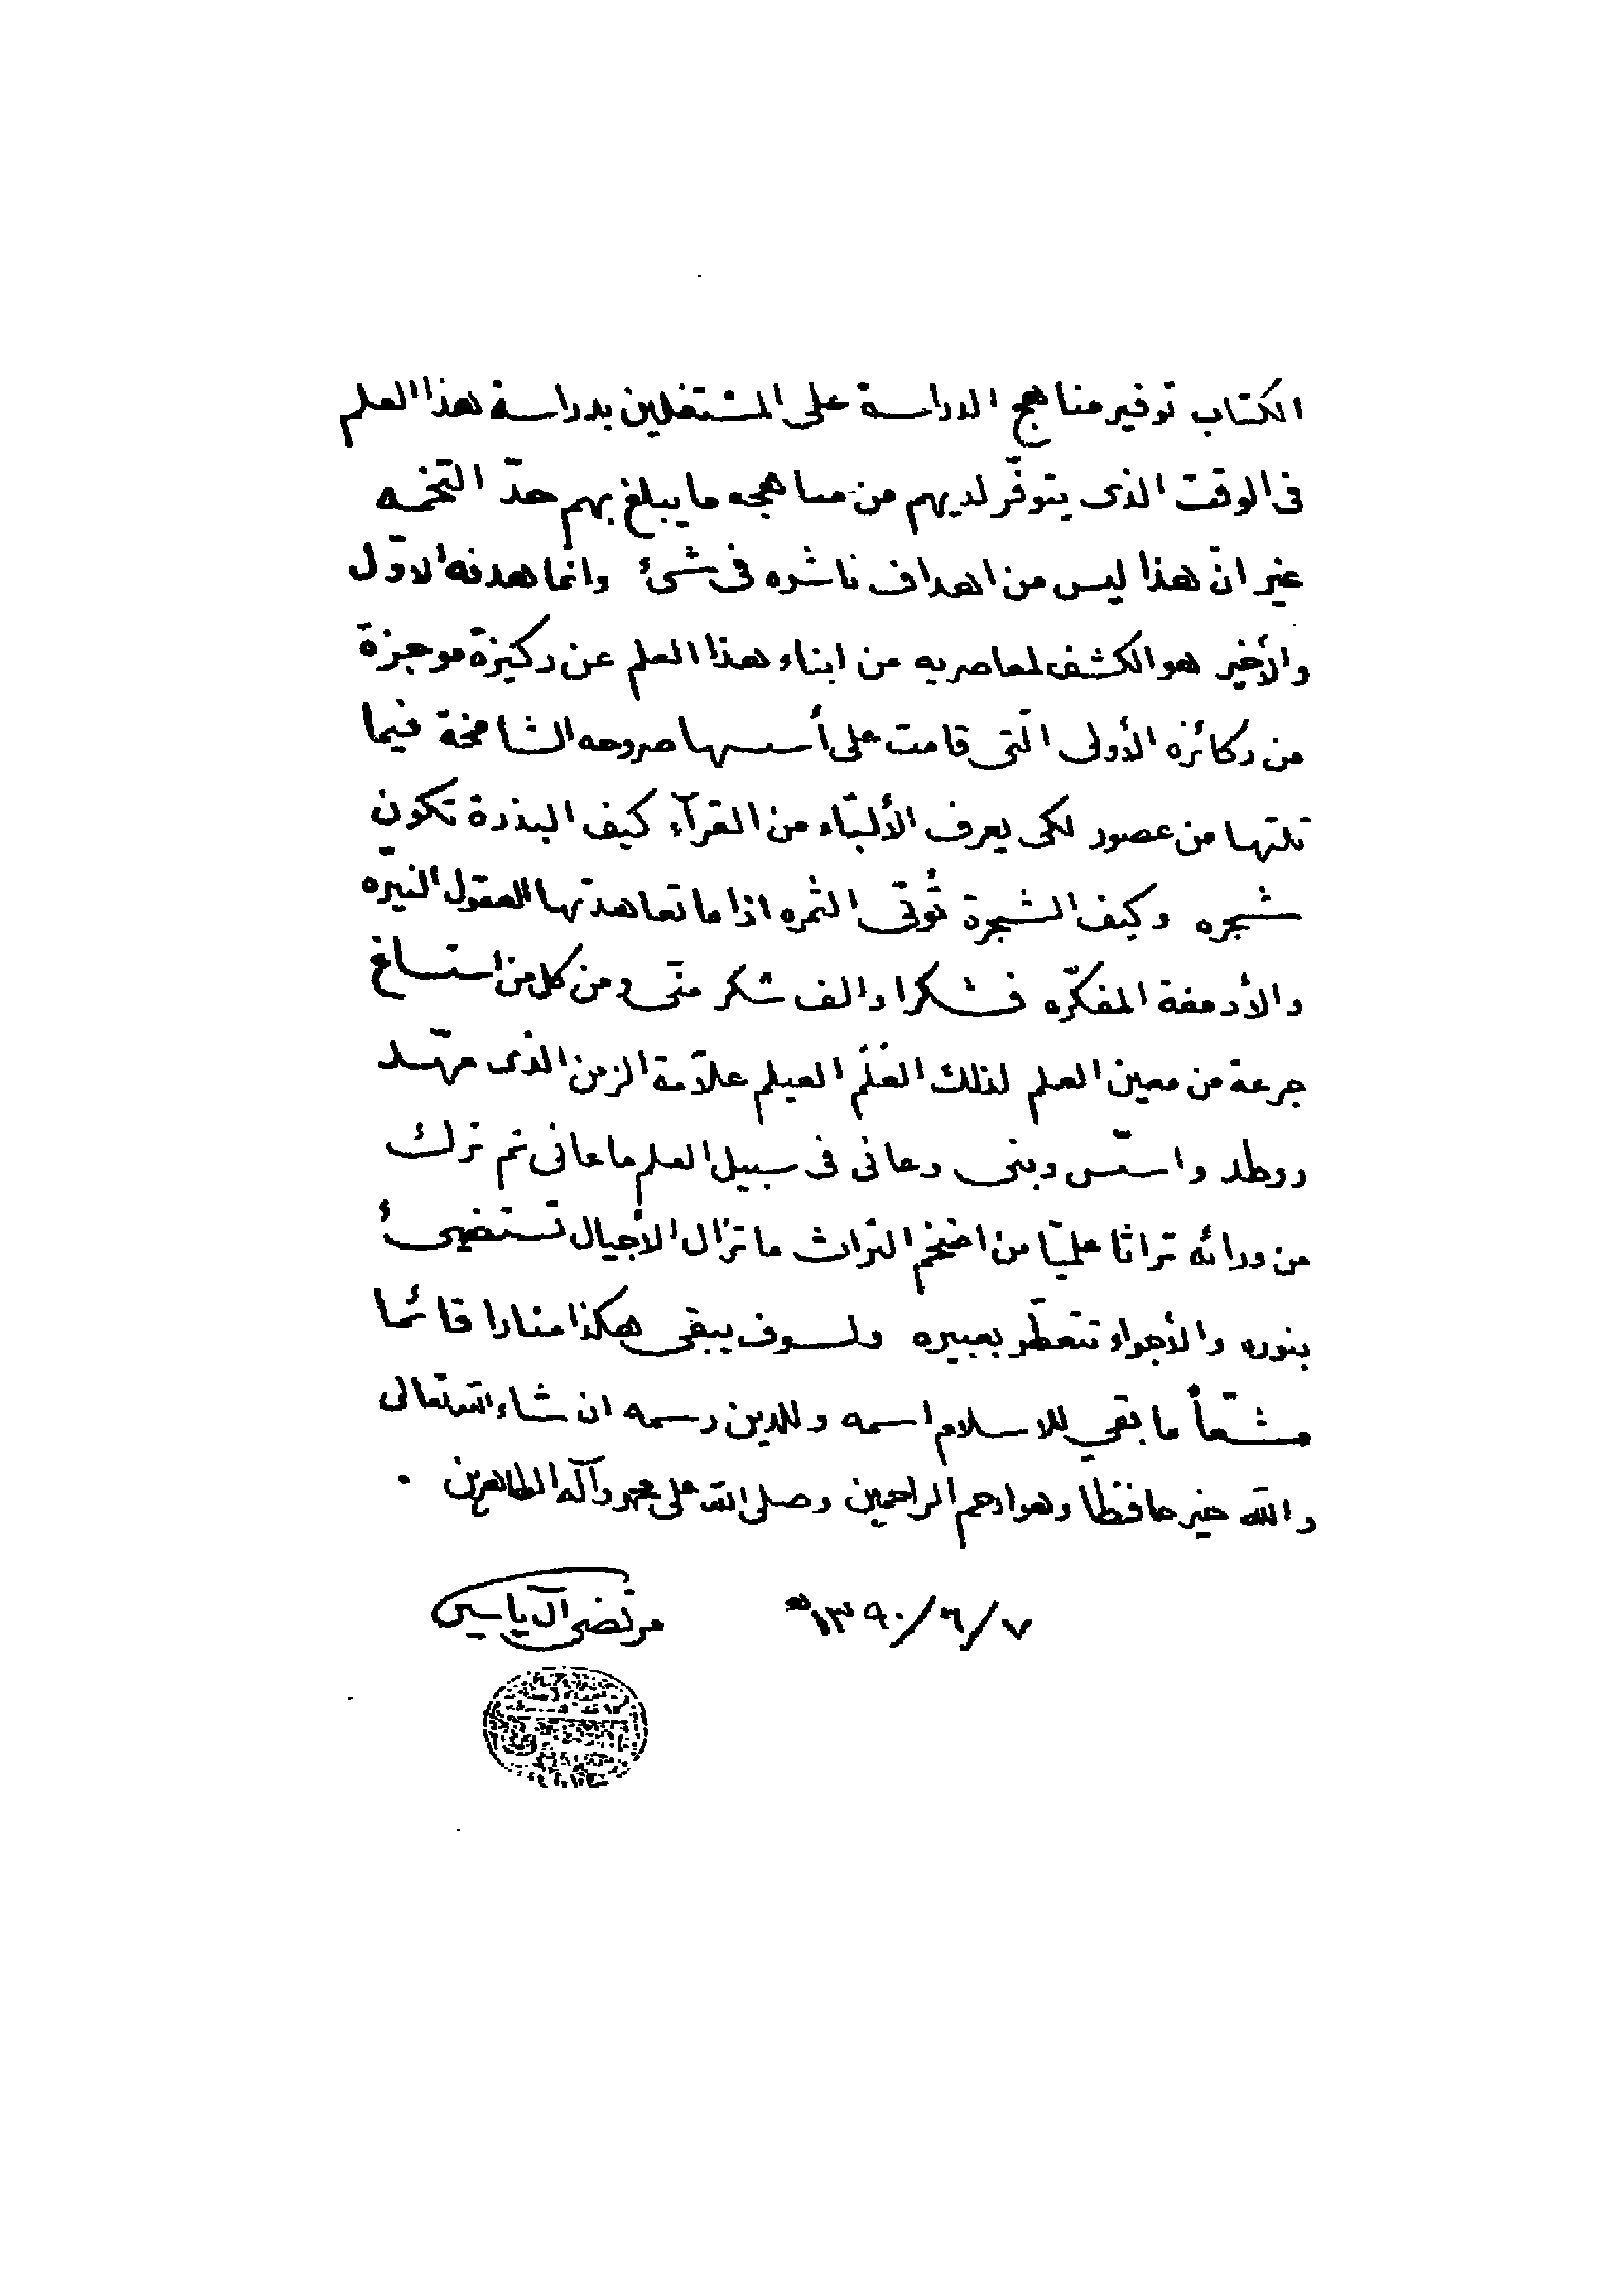 الكتاب توفير مناهج الدراسة على المشتغلين بدراسة هذا العلم
فى الوقت الذى يتوفّر لديهم من مناهجه ما يبلغ بهم حدّ التخمه
غير انّ هذا ليس من اهداف ناشره فى شئ وانّما هدفه الاوّل
والأخير هو الكشف لمعاصريه من ابناء هذا العلم عن ركيزة موجزة
من ركائزه الأولى الّتى قامت على أسسها صروحه الشامخة فيما
تلتها من عصور لكى يعرف الألبّاء من القرآء كيف البذرة تكون
شجره وكيف الشجرة تُؤتى الثمره اذا ما تعاهدتها العقول النيّره
والأدمغة المفكّره فشكرا والف شكر منّى ومن كل من استساغ
جرعة من معين العلم لذلك العَلَم العيلم علاّمة الزمن الذى مهّد
ووطد واسّس وبنى وعانى فى سبيل العلم ما عانى ثم ترك
من ورائه تراثا علميّا من اضخم التراث ما تزال الأجيال تستضيئ
بنوره والأجواء تتعطّر بعبيره ولسوف يبقى هكذا منارا قائما
مشعّاً ما بقي للاسلام اسمه وللدين رسمه ان شاء الله تعالى
والله خير حافظا وهو ارحم الراحمين وصلى الله على محمد وآله الطاهرين .
٧/٦/١٣٩٠هـ مرتضى آل ياسين